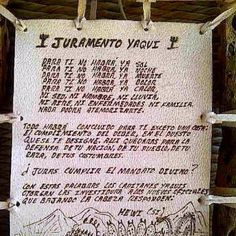 JURAMENTO YAQUI
PARA TI NO HABRA YA SOL
PARA TI NO HABRA YA NOCHE
PARA TI NO HABRA YA MUERTE
PARA TI NO HABRA YA DOLOR
PARA TI NO HABRA YA CALOR
NI SED, NI HAMBRE, NI LLUVIA,
NI AIRE NI ENFERMEDADES NI FAMILIA.
NADA PODRA ATEMORIZARTE.
TODO HABRA CONCLUIDO PARA TI EXCEPTO UNA COSA:
EL CUMPLIMIENTO DEL DEBER, EN EL PUESTO
QUE SE TE DESIGNE, ALLI QUEDARAS PARA LA
DEFENSA DE TU NACION, DE TU PUEBLO, DE TU
RAZA, DE TUS COSTUMBRES.
¿ JURAS CUMPLIR EL MANDATO DIVINO?
CON ESTAS PALABRAS LOS CAPITANES YAQUIS
OTORGAN LAS INVESTIDURA A LOS NUEVOS OFICIALES
QUE BAJANDO LA CABEZA RESPONDEN:
HEWI (SI)